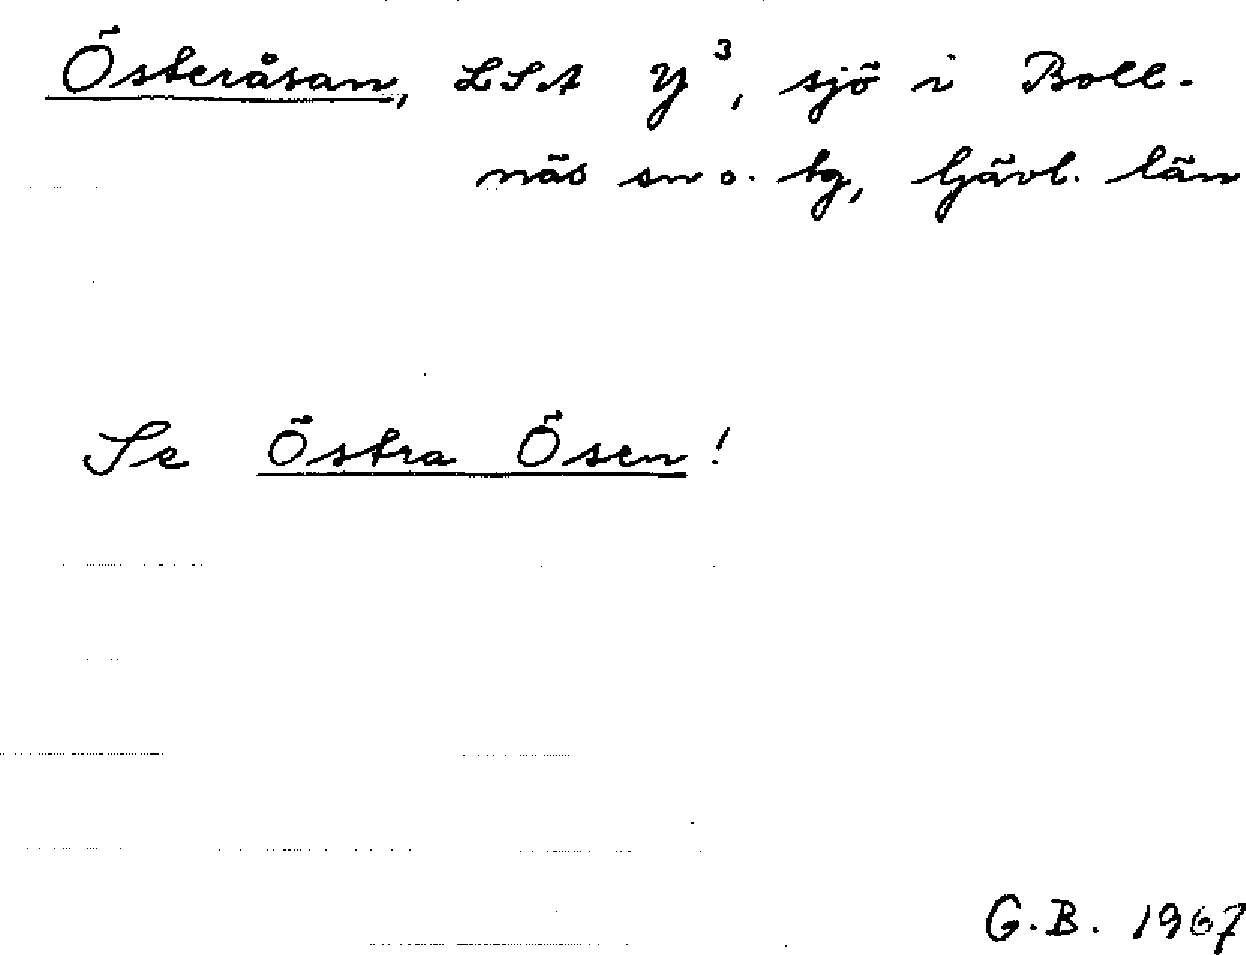 Österåsan, LSA Y³, sjö i Boll-
näs sn o. tg, Gävl. län
Se Östra Ösen!
G.B. 1967